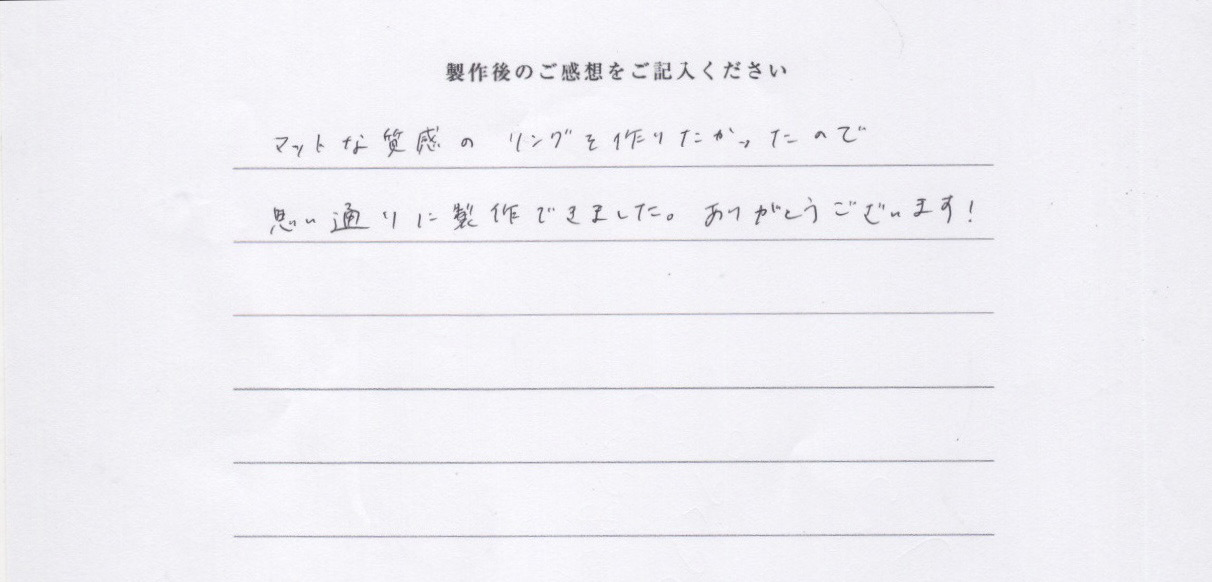 製作後のご感想をご記入ください
マットな質感のリングを作りたかったので
思い通りに製作できました。ありがとうございます!